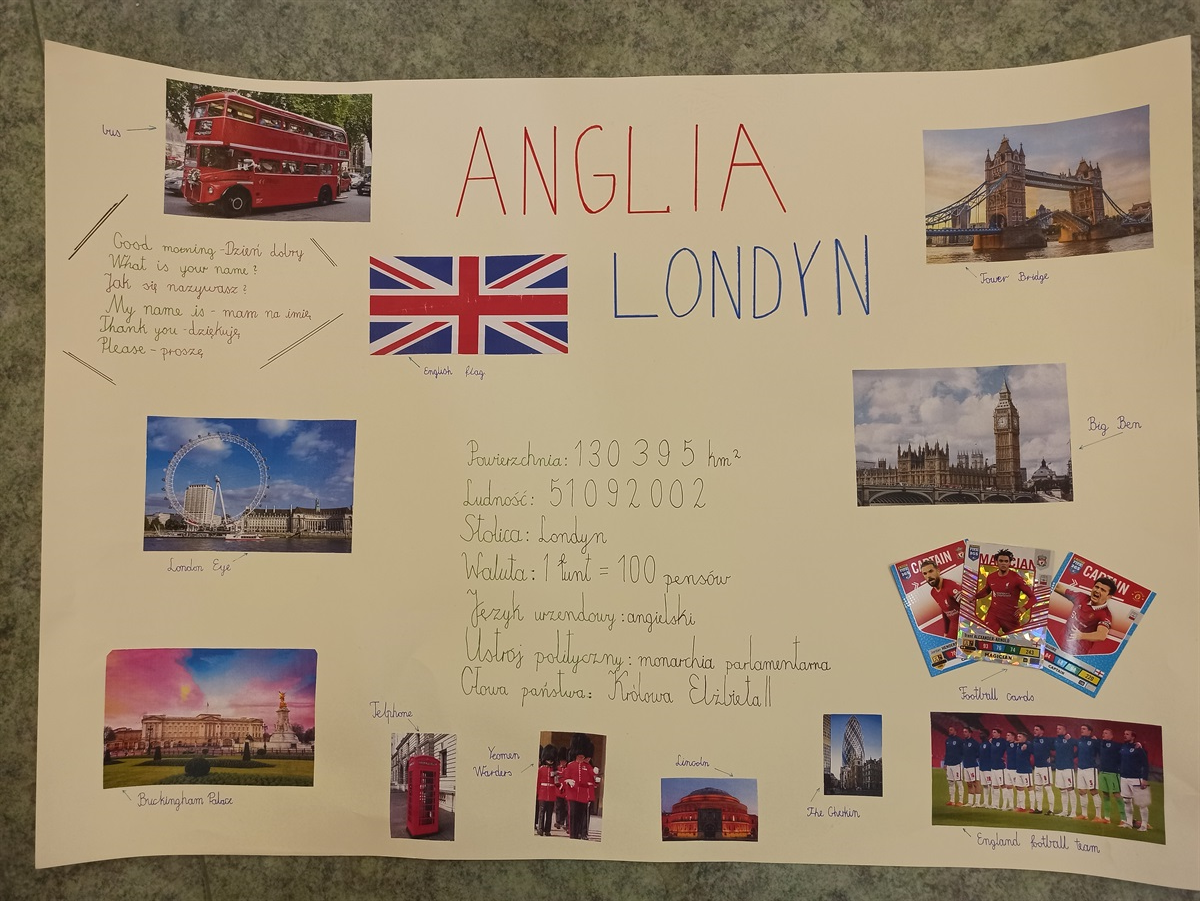 ANGLIA
LONDYN
bus
Good morning - Dzień dobry
What is your name?
Jak się nazywasz?
My name is - mam na imię
Thank you - dziękuję
Please - proszę
English flag
Tower Bridge
Big Ben
London Eye
Powierzchnia: 130 395 km²
Ludność: 51092002
Stolica: Londyn
Waluta: 1 funt = 100 pensów
Język urzendowy: angielski
Ustrój polityczny: monarchia parlamentarna
Głowa państwa: Królowa Elżbieta II
CAPTAIN
MAGICIAN
CAPTAIN
MAGICIAN
CAPTAIN
Football cards
Buckingham Palace
Telphone
Yeomen
Warders
Lincoln
The Gherkin
England football team